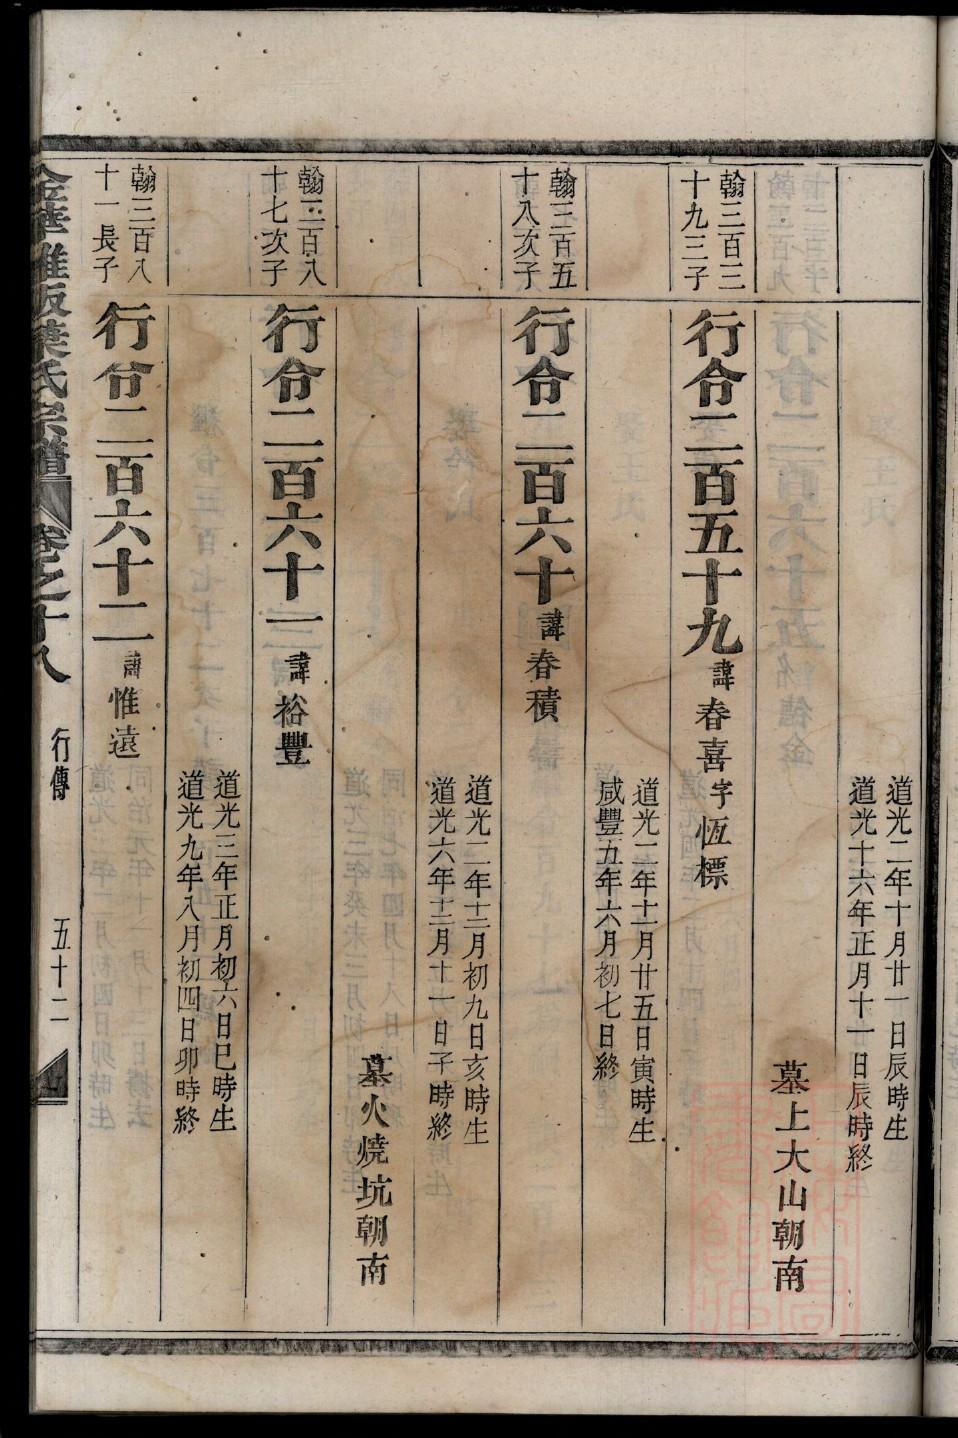 道光二年十月廿一日辰時生
道光十六年正月十一日辰時終
墓上大山朝南
翰三百三
十九三子
行令二百五十九 諱春喜字恆標
道光二年十一月廿五日寅時生
咸豐五年六月初七日終
翰三百五
十八次子
行令二百六十 諱春積
道光二年十二月初九日亥時生
道光六年十二月十一日子時終
墓火燒坑朝南
翰三百八
十七次子
行令二百六十一 諱裕豐
道光三年正月初六日巳時生
道光九年八月初四日卯時終
翰三百八
十一長子
行令二百六十二 諱惟遠
金華雅畈葉氏宗譜 卷之十八 行傳 五十二